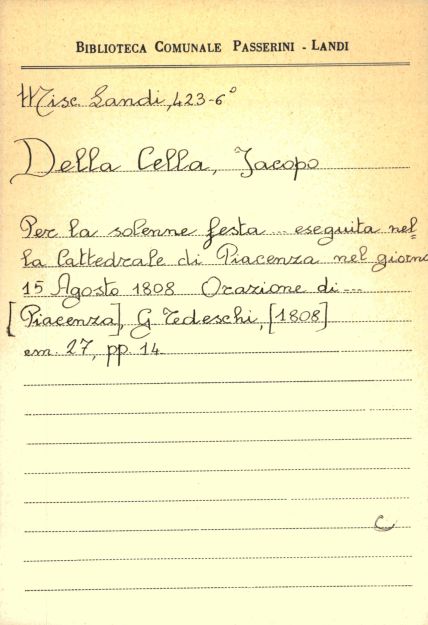 BIBLIOTECA COMUNALE PASSERINI - LANDI
Misc. Landi, 423-6°
Della Cella, Jacopo
Per la solenne festa ... eseguita nel=
la Cattedrale di Piacenza nel giorno
15 Agosto 1808 Orazione di ...
[Piacenza], G. Tedeschi, [1808]
cm. 27, pp. 14.
C